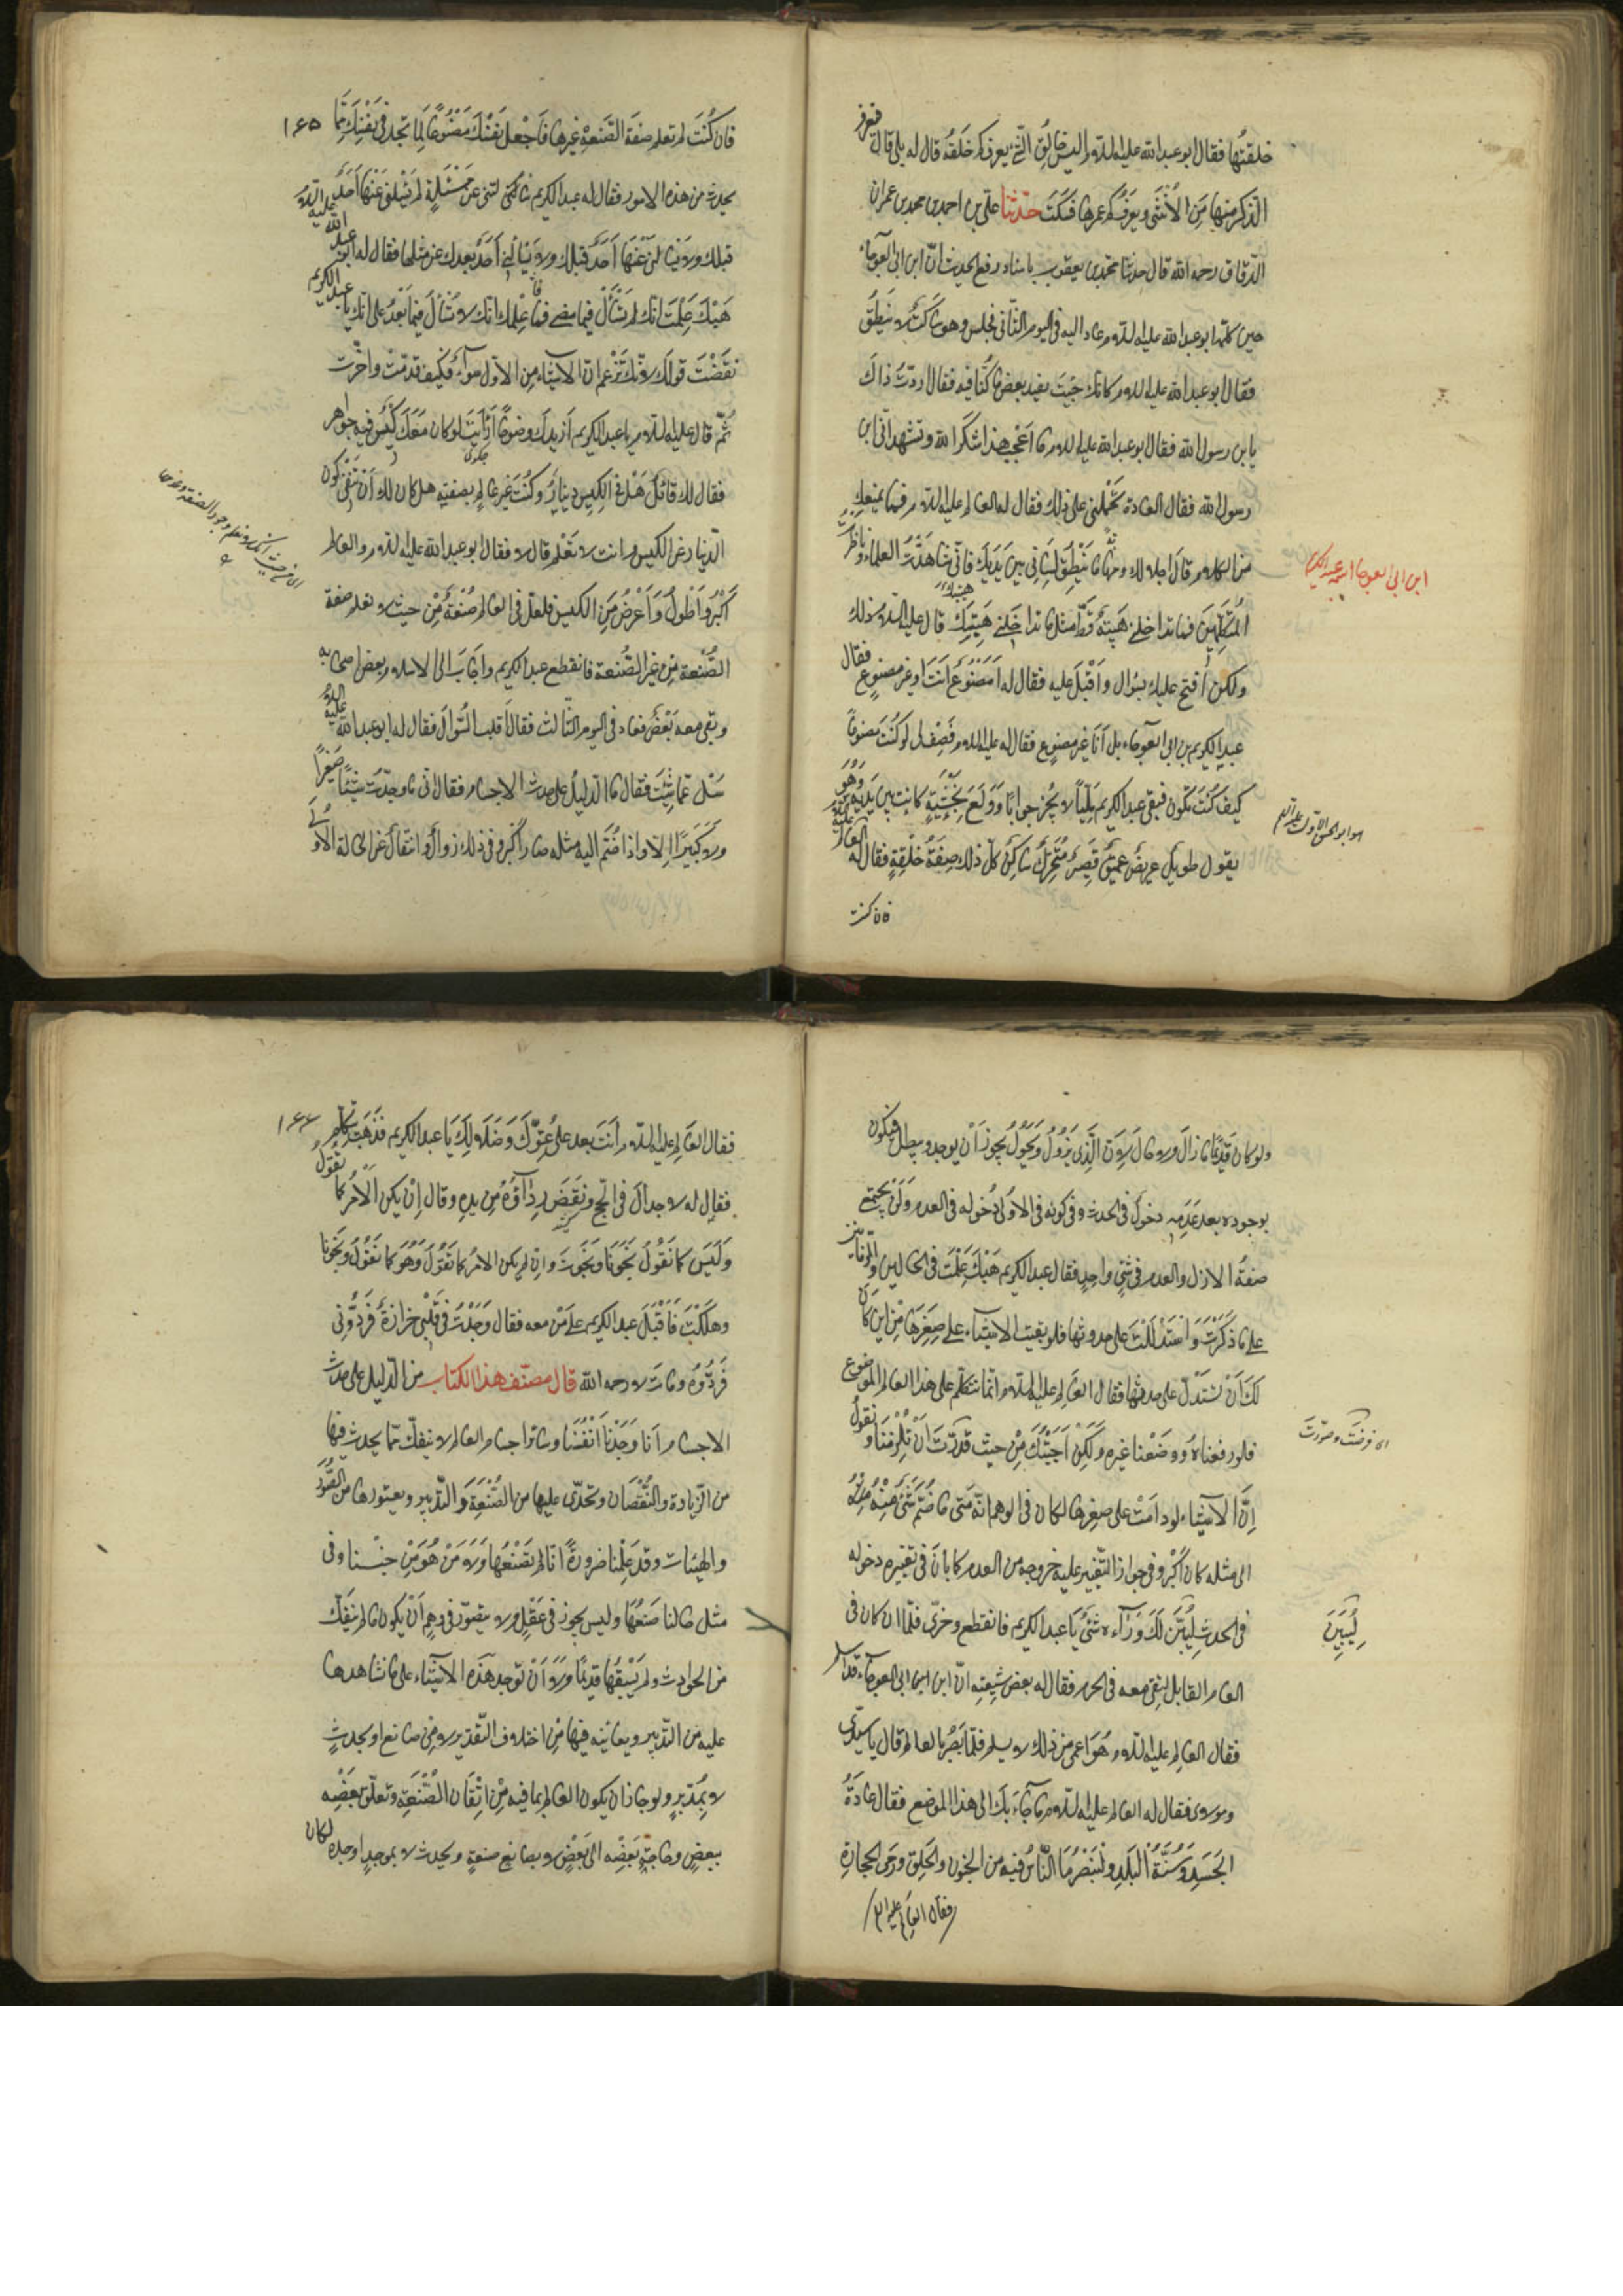 خلقتُها فقال ابو عبدالله عليه السلام اليس خالق الشئ يعرف كم خلقه قال له بلى قال فتعرف
الذكر منها من الانثى ويعرف كم عمرها فسكت حدّثنا علىّ بن احمد بن محمد بن عمران
الدقاق رحمه الله قال حدثنا محمد بن يعقوب باسناده رفع الحديث انّ ابن ابى العوجاء
حين كلّمه ابو عبدالله عليه السلام عاد اليه فى اليوم الثانى فجلس وهو ساكت لا ينطق
فقال ابو عبدالله عليه السلام كانك جئت بعيد بعض ما كُنّا فيه فقال اردتُ ذاك
يا بن رسول الله فقال ابو عبدالله عليه السلام ما اعجب هذا تنكر الله وتشهد انّى ابن
رسول الله فقال العادة تحملنى على ذلك فقال له العالم عليه السلام فما يمنعك
من الكلام قال اجلالا لك ومهابة ما ينطق لسانى بين يديك فانّى شاهدتُ العلماء وناظرتُ
المتكلّمين فما تداخلنى هيبةٌ قطّ مثل ما تداخلنى من هيبتك قال عليه السلام يكون ذلك
ولكن افتح عليك بسؤال واَقْبَلَ عليه فقال له اَمصنوع انت او غير مصنوع فقال
عبد الكريم بن ابى العوجاء بل اَنَا غير مصنوع فقال له عليه السلام فَصِف لى لو كُنتَ مصنوعًا
كيف كُنتَ تكون فبقى عبدالكريم مَليّاً لا يُحرُ جوابًا وَوَلَعَ بِخَشَبَةٍ كانت بين يَدَيه وَهُوَ
يقول طويل عريض عميق قصير متحرّك ساكن كلّ ذلك صِفَةُ خَلْقِه فقال له العالم عليه السلام
فان كنت
ابن ابى العوجا اسمه عبدالكريم
هو ابو الحسن الاول عليه السلام
١٦٥
فان كُنْتَ لم تعلم صفة الصَّنعةِ غيرها فَاجْعل نفسك مَصْنُوعًا لِما تجد فى نفسك ممّا
يحدث من هذه الامور فقال له عبدالكريم سألتنى عن مَسْئَلةٍ لم يسئلنى عَنها اَحَدٌ
قبلك ولا يسألنى عَنْهَا اَحَدٌ بعدك عن مثلها فقال له ابو عبدالله عليه السلام
هَبْكَ عَلِمْتَ انّك لم تُسْأَلْ فيما مضى فما عِلْمك انّك لا تُسْأَل فيما بَعْدُ على انّك يا عبدالكريم
نَقَضْتَ قولك لانّك تَزْعم ان الاشياء من الاوّل سواءٌ فكيف قدّمتَ واخّرت
ثُمّ قال عليه السلام يا عبدالكريم ازيدك وضوحًا اَرَاَيتَ لو كان مَعَكَ كِيْسٌ فيه جواهر
فقال لك قائل هَلْ فى الكيس دينارٌ وكُنْتَ غير عالمٍ بصفته هل كان لك اَنْ تَنْفِى كون
الدّينار عن الكيس وانت لا تعْلم قال لا فقال ابو عبدالله عليه السلام والعالم
اَكْبرُ واَطْولُ وَاَعْرضُ مِنَ الكيس فلعلّ فى العالم صُنْعةً مِنْ حيث لا تعلم صفة
الصُّنْعة مِن غير الصُّنعة فانقطع عبدالكريم واجَابَ الى الاسلام بعض اصحابه
وبقى معه بَعْضٌ فعاد فى اليوم الثالث فقال اَقلب السُّؤال فقال له ابو عبدالله عليه السلام
سَل عمّا شِئتَ فقال ما الدليل على حدث الاجسام فقال انّى ما وجَدْتُ شيئًا صغيراً
ولا كبيرًا الّا واذا ضُمّ اليه مثله صار اكبر وفى ذلك زوالٌ وانتقال عن الحالة الاولى
ولو كان قديمًا ما زال ولا حال لانّ الَّذى يَزُولُ وَيَحُولُ يجوز اَنْ يوجد ويبطل فيكون
بوجوده بعد عَدَمِه دخول فى الحدث وفى كونه فى الاولى دُخوله فى العدم وَلَنْ يجتمع
صفةُ الازل والعدم فى شئٍ واحدٍ فقال عبدالكريم هَبْكَ عَلِمْتَ فى الحالين والزمانين
على ما ذكَرْتَ وَاستَدْلَلْتَ على حدوثها فلو بقيت الاشياء على صِغَرِها مِن اين كان
لكَ اَنْ تستدلّ على حدثها فقال العالم عليه السلام انّما نتكلّم على هذا العالم الموضوع
فلو رفعناهُ ووَضَعْنا غيره ولكن اُجيبك مِنْ حيث قدّرتَ اَنْ تلزمنا ونقول
اِنّ الاشياء لو دامَتْ على صغرها لكان فى الوهم انّه متى ما ضُمّ شَىْءٌ مِنْهُ
الى مثله كان اكبر وفى جواز التّغيير عليه خروجه من القدم كما بان فى تغييره دخوله
فى الحدث لِيُبَيّن لَكَ وَرَآءه شَىْءٌ يا عبدالكريم فانقطع وخزى فلمّا ان كان فى
العام القابل التقى معه فى الحرم فقال له بعض شيعته انّ ابن ابى العوجاء قد اسلم
فقال العالم عليه السلام هو اعمى من ذلك لا يسلم فلمّا بَصُر بالعالم قال يا سيّدى
ومولاى فقال له العالم عليه السلام ما جاءَ بك الى هذا الموضع فقال عادَةُ
الجَسَدِ وسُنَّةُ البَلَدِ ولنُبْصِرُ مَا النَّاسُ فيه من الجنون والحلق ورمى الحجارة
فقال العالم عليه السلم
اى فرضتَ وصوّرتَ
لِيُبَيِّنَ
١٦٦
فقال العالم عليه السلام اَنتَ بعد على عُتوّك وَضلالك يا عبدالكريم فذهب يتكلّم
فقال له لا جدال فى الحج ونفض رداءَه من يده وقال اِنْ يكن الامر كما تقول
وليس كما نقول نَجَونا ونَجَوت وان لم يكن الامر كما تقول وَهُوَ كما نقول نَجَونا
وهلكْتَ فَاَقْبَلَ عبدالكريم على مَنْ معه فقال وَجَدْتُ فى قلبى حزازةً فَرَدُّونى
فَرَدُّوهُ ومات لا رحمه الله قال مصنّف هذا الكتاب من الدّليل على حدث
الاجسام اَنا وَجَدْنا اَنْفُسَنا وسائر اجسام العالم لا ينفكّ ممّا يحدث فيها
من الزّيادة والنُّقْصَان وتجرى عليها من الصُّنْعَة والتّدبير ويعتورها من الصُّوَر
والهيئات وقد عَلِمْنا ضرورةً انا لم نَصْنَعها ولا مَنْ هُوَ مِن جنسنا وفى
مثل حالنا صَنَعَها وليس يجوز فى عَقْلٍ ولا يتصوّر فى وهمٍ اَنْ يكون ما لم ينفكّ
من الحوادث ولم يَسْبِقْها قديمًا ولا اَنْ توجد هَذه الاشياء على ما نشاهدها
عليه من التّدبير ويعاينه فيها مِن اختلاف التّقدير لا مِن صانع او يحدث
لا بِمُدَبّرٍ ولو جاز ان يكون العالم بما فيه مِنْ اِتْقَان الصُّنْعَة وتعلّق بَعْضِه
ببعض وحاجةِ بَعْضِه الى بَعْضٍ لا بصانعٍ صنعه ويحدث لا بموجدٍ اوجده لكان